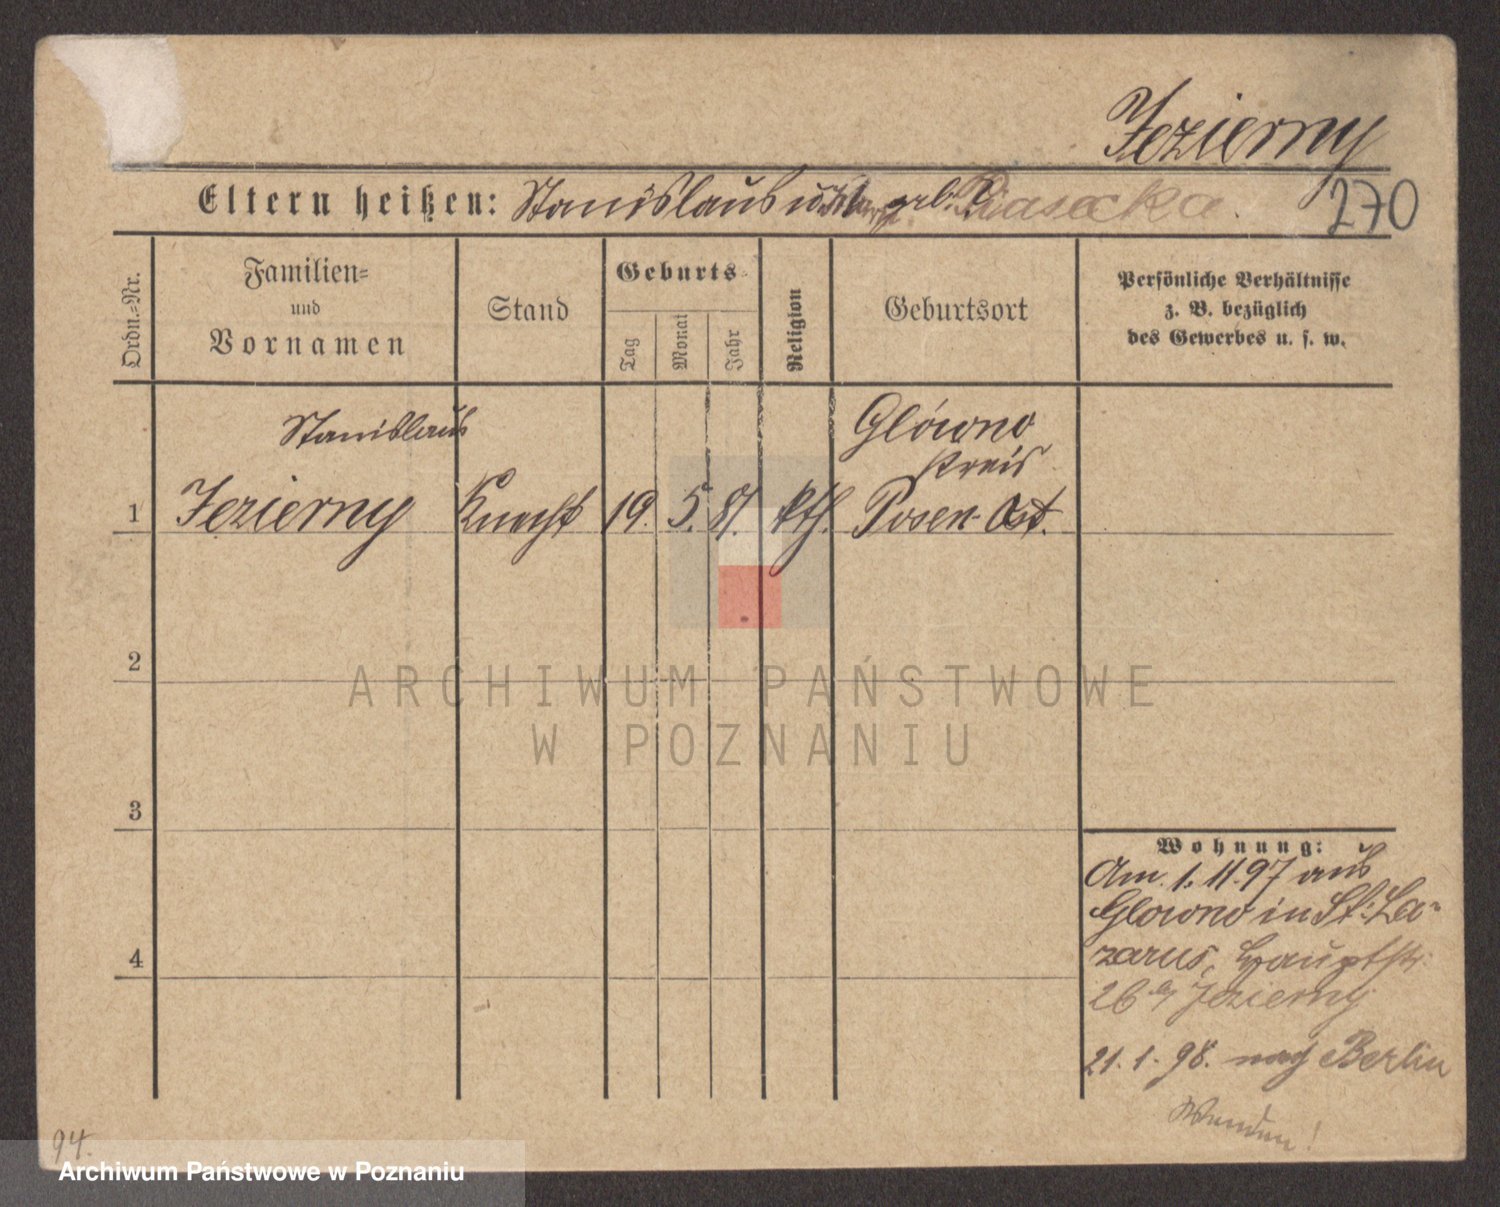 Jezierny
270
Eltern heißen: Stanislaus u. geb. Piasecka.
Ordn.=Nr.
Familien=
und
Vornamen
Stand
Geburts=
Tag
Monat
Jahr
Religion
Geburtsort
Persönliche Verhältnisse
z. B. bezüglich
des Gewerbes u. s. w.
Stanislaus
Główno
Kreis
1 Jezierny Knecht 19. 5. 81. kth. Posen-Ost.
2
ARCHIWUM PAŃSTWOWE
W POZNANIU
3
Wohnung:
Am 1. 11. 97 aus
Glowno in St: La-
zarus, Hauptstr.
26 Jezierny
4
21. 1. 98. nach Berlin
Wenden!
94.
Archiwum Państwowe w Poznaniu